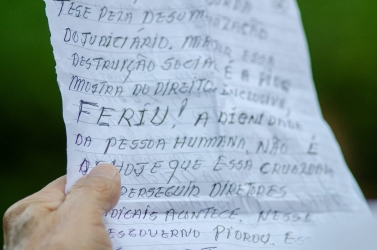 TESE PELA DESUMANIZAÇÃO
DO JUDICIÁRIO, MATAR ESSA
DESTRUIÇÃO SOCIAL É A PIOR
MOSTRA DO DIREITO, INCLUSIVE,
FERIU! A DIGNIDADE
DA PESSOA HUMANA, NÃO É
DE HOJE QUE ESSA CRUZADA
PERSEGUIU DIRETORES
SINDICAIS ACONTECE, NESSE
DESGOVERNO PIOROU, ES